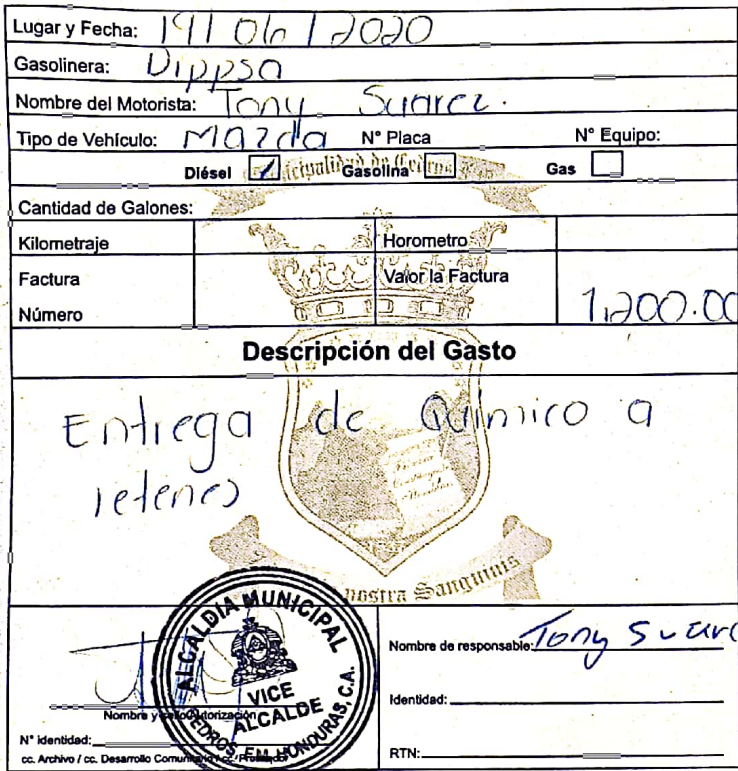 Lugar y Fecha: 19/06/2020
Gasolinera: Dippsa
Nombre del Motorista: Tony Suarez.
Tipo de Vehículo: Mazda N° Placa N° Equipo:
Diésel Gasolina Gas
Cantidad de Galones:
Kilometraje Horometro
Factura Número Valor la Factura 1,200.00
Descripción del Gasto
Entrega de Químico a
retenes
nostra Sanguinis
ALCALDIA MUNICIPAL
VICE
ALCALDE
CEDROS, F.M. HONDURAS, C.A.
Nombre y sello Autorización
N° identidad:
cc. Archivo / cc. Desarrollo Comunitario / cc.
Nombre de responsable: Tony Suare
Identidad:
RTN: